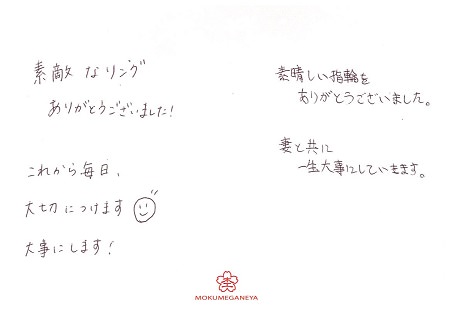 素敵なリング
ありがとうございました!
これから毎日、
大切につけます
大事にします!
素晴しい指輪を
ありがとうございました。
妻と共に
一生大事にしていきます。
MOKUMEGANEYA